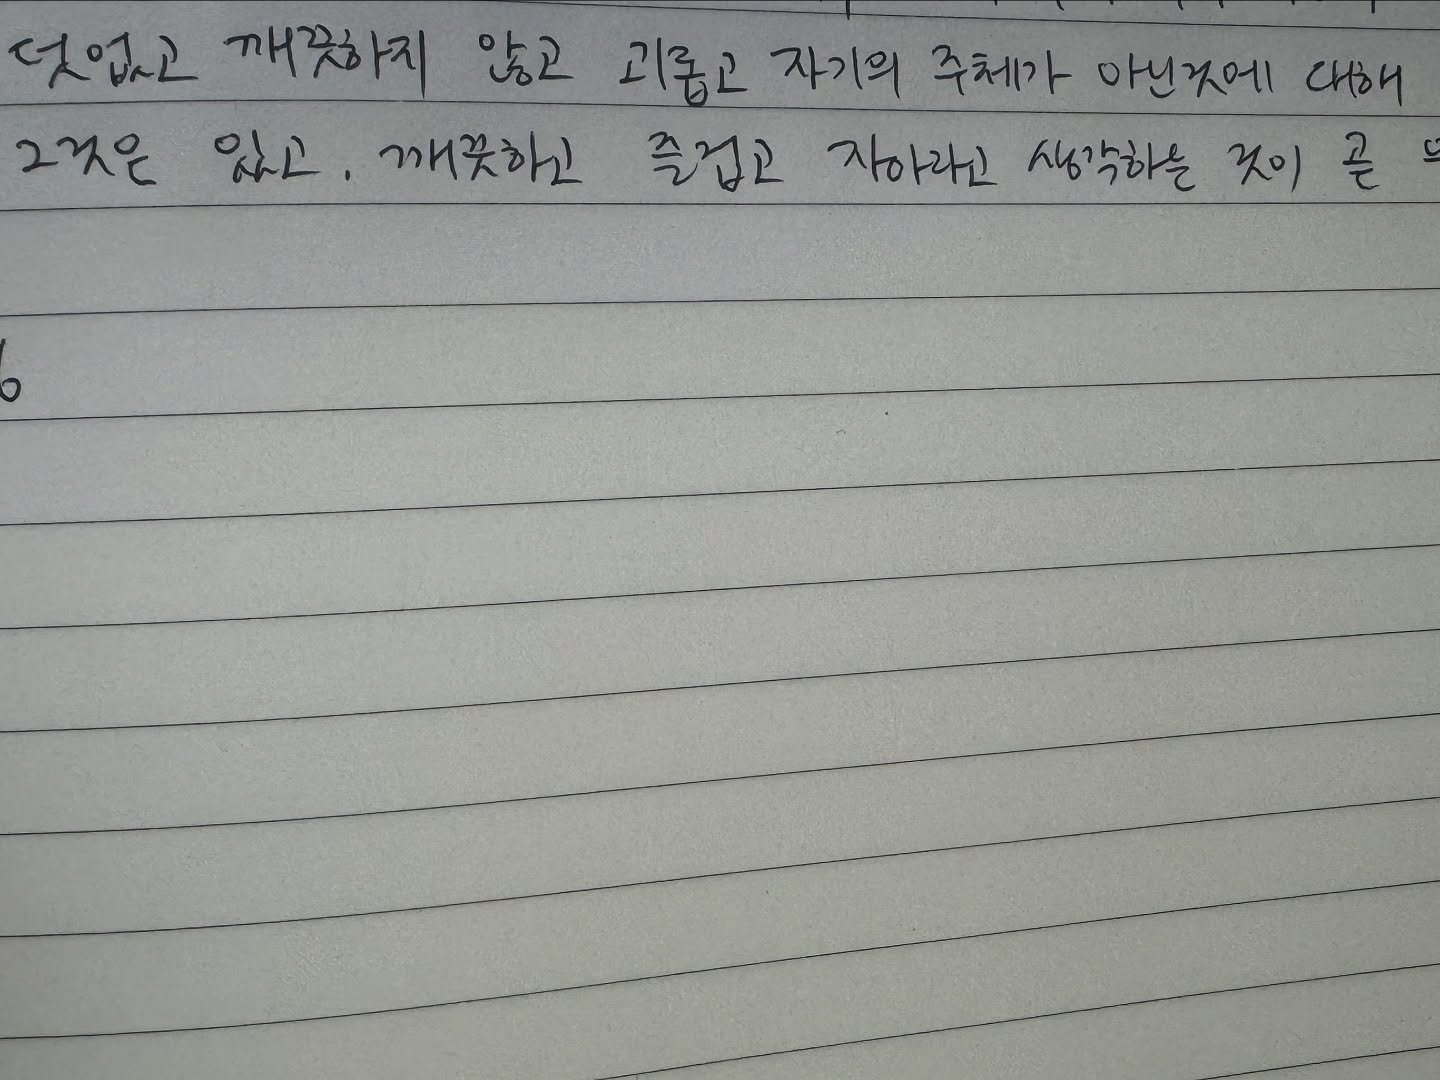 덧없고 깨끗하지 않고 괴롭고 자기의 주체가 아닌것에 대해
그것은 있고. 깨끗하고 즐겁고 자아라고 생각하는 것이 곧
6